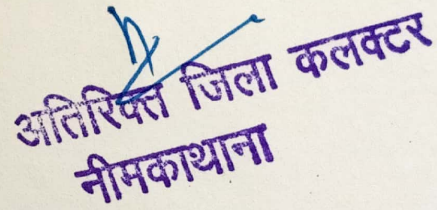 अतिरिक्त जिला कलक्टर
नीमकाथाना